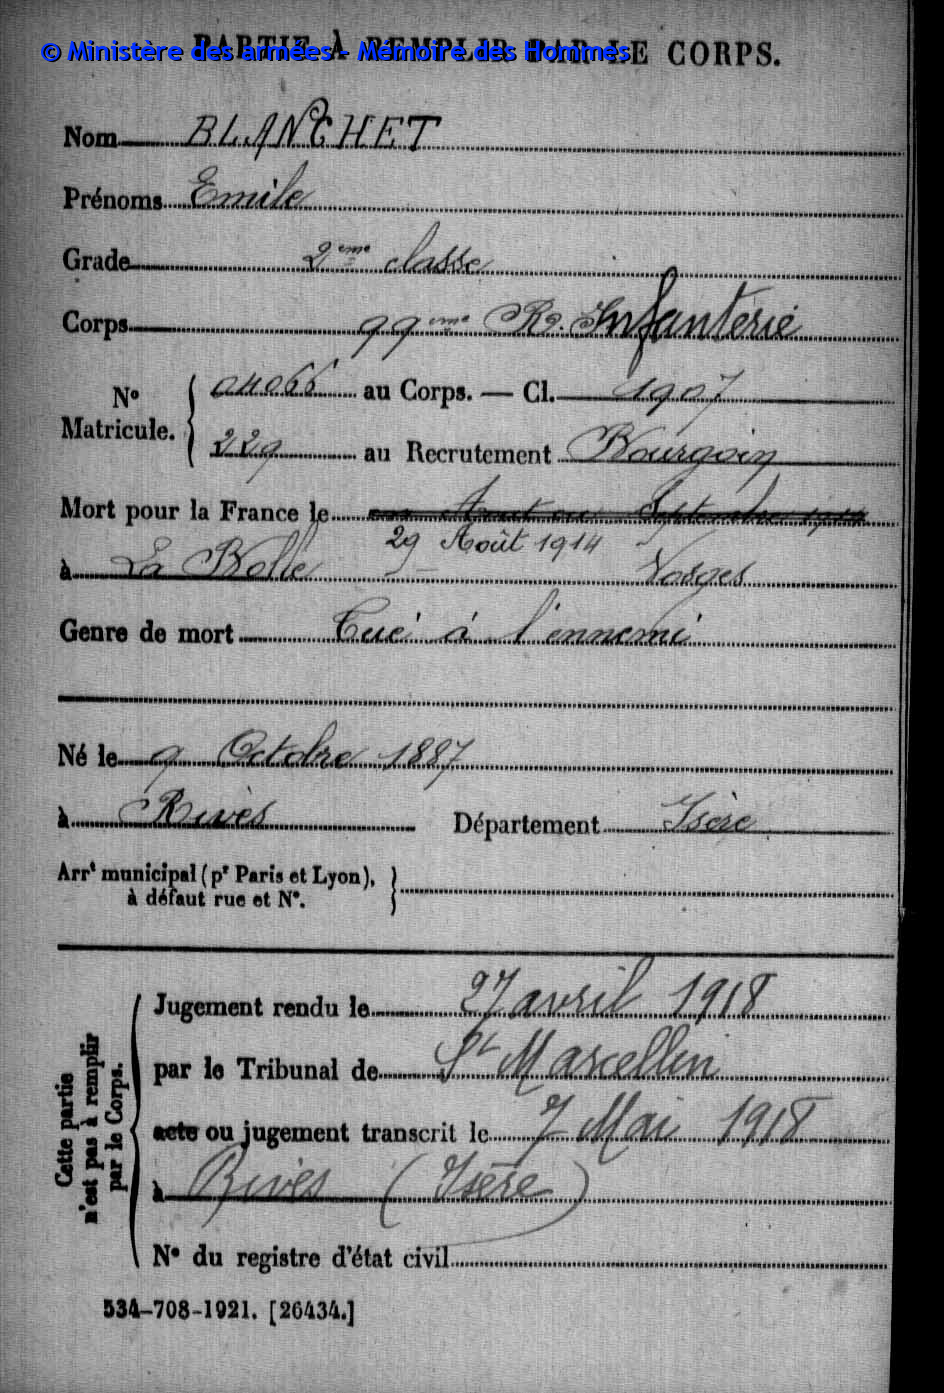 PARTIE À REMPLIR PAR LE CORPS.
© Ministère des armées - Mémoire des Hommes
Nom BLANCHET
Prénoms Emile
Grade 2ème classe
Corps 99ème Rg. Infanterie
N° Matricule. { 04066 au Corps. — Cl. 1907
229 au Recrutement Bourgoin
Mort pour la France le en Août ou Septembre 1914
29 Août 1914
à La Bolle Vosges
Genre de mort Tué à l'ennemi
Né le 9 Octobre 1887
à Rives Département Isère
Arrt municipal (pr Paris et Lyon),
à défaut rue et N°.
Cette partie
n'est pas à remplir
par le Corps.
Jugement rendu le 27 avril 1918
par le Tribunal de St Marcellin
acte ou jugement transcrit le 7 Mai 1918
à Rives (Isère)
N° du registre d'état civil
534-708-1921. [26434.]